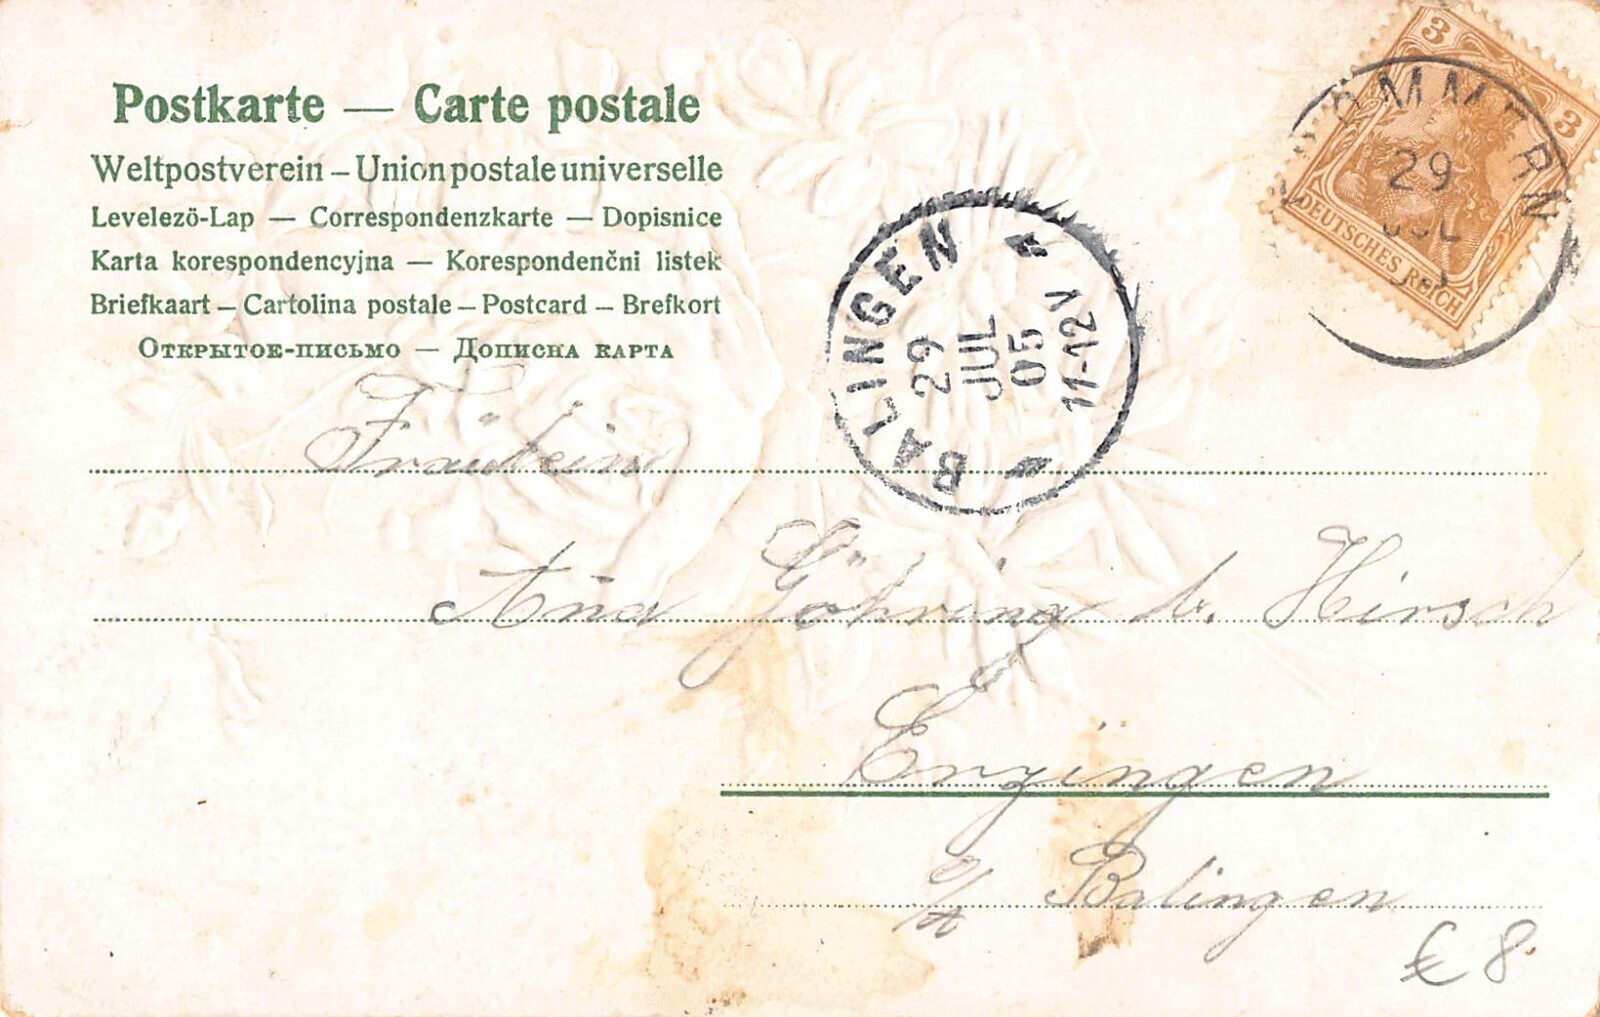 Postkarte — Carte postale
Weltpostverein – Union postale universelle
Levelezö-Lap — Correspondenzkarte — Dopisnice
Karta korespondencyjna — Korespondenčni listek
Briefkaart – Cartolina postale – Postcard – Brefkort
Открытое-письмо — Дописна карта
3
3
DEUTSCHES REICH
29
JUL
BALINGEN
29
JUL
05
11-12V
Fräulein
Ana Göhring b. Hirsch
Erzingen
Balingen
€ 8